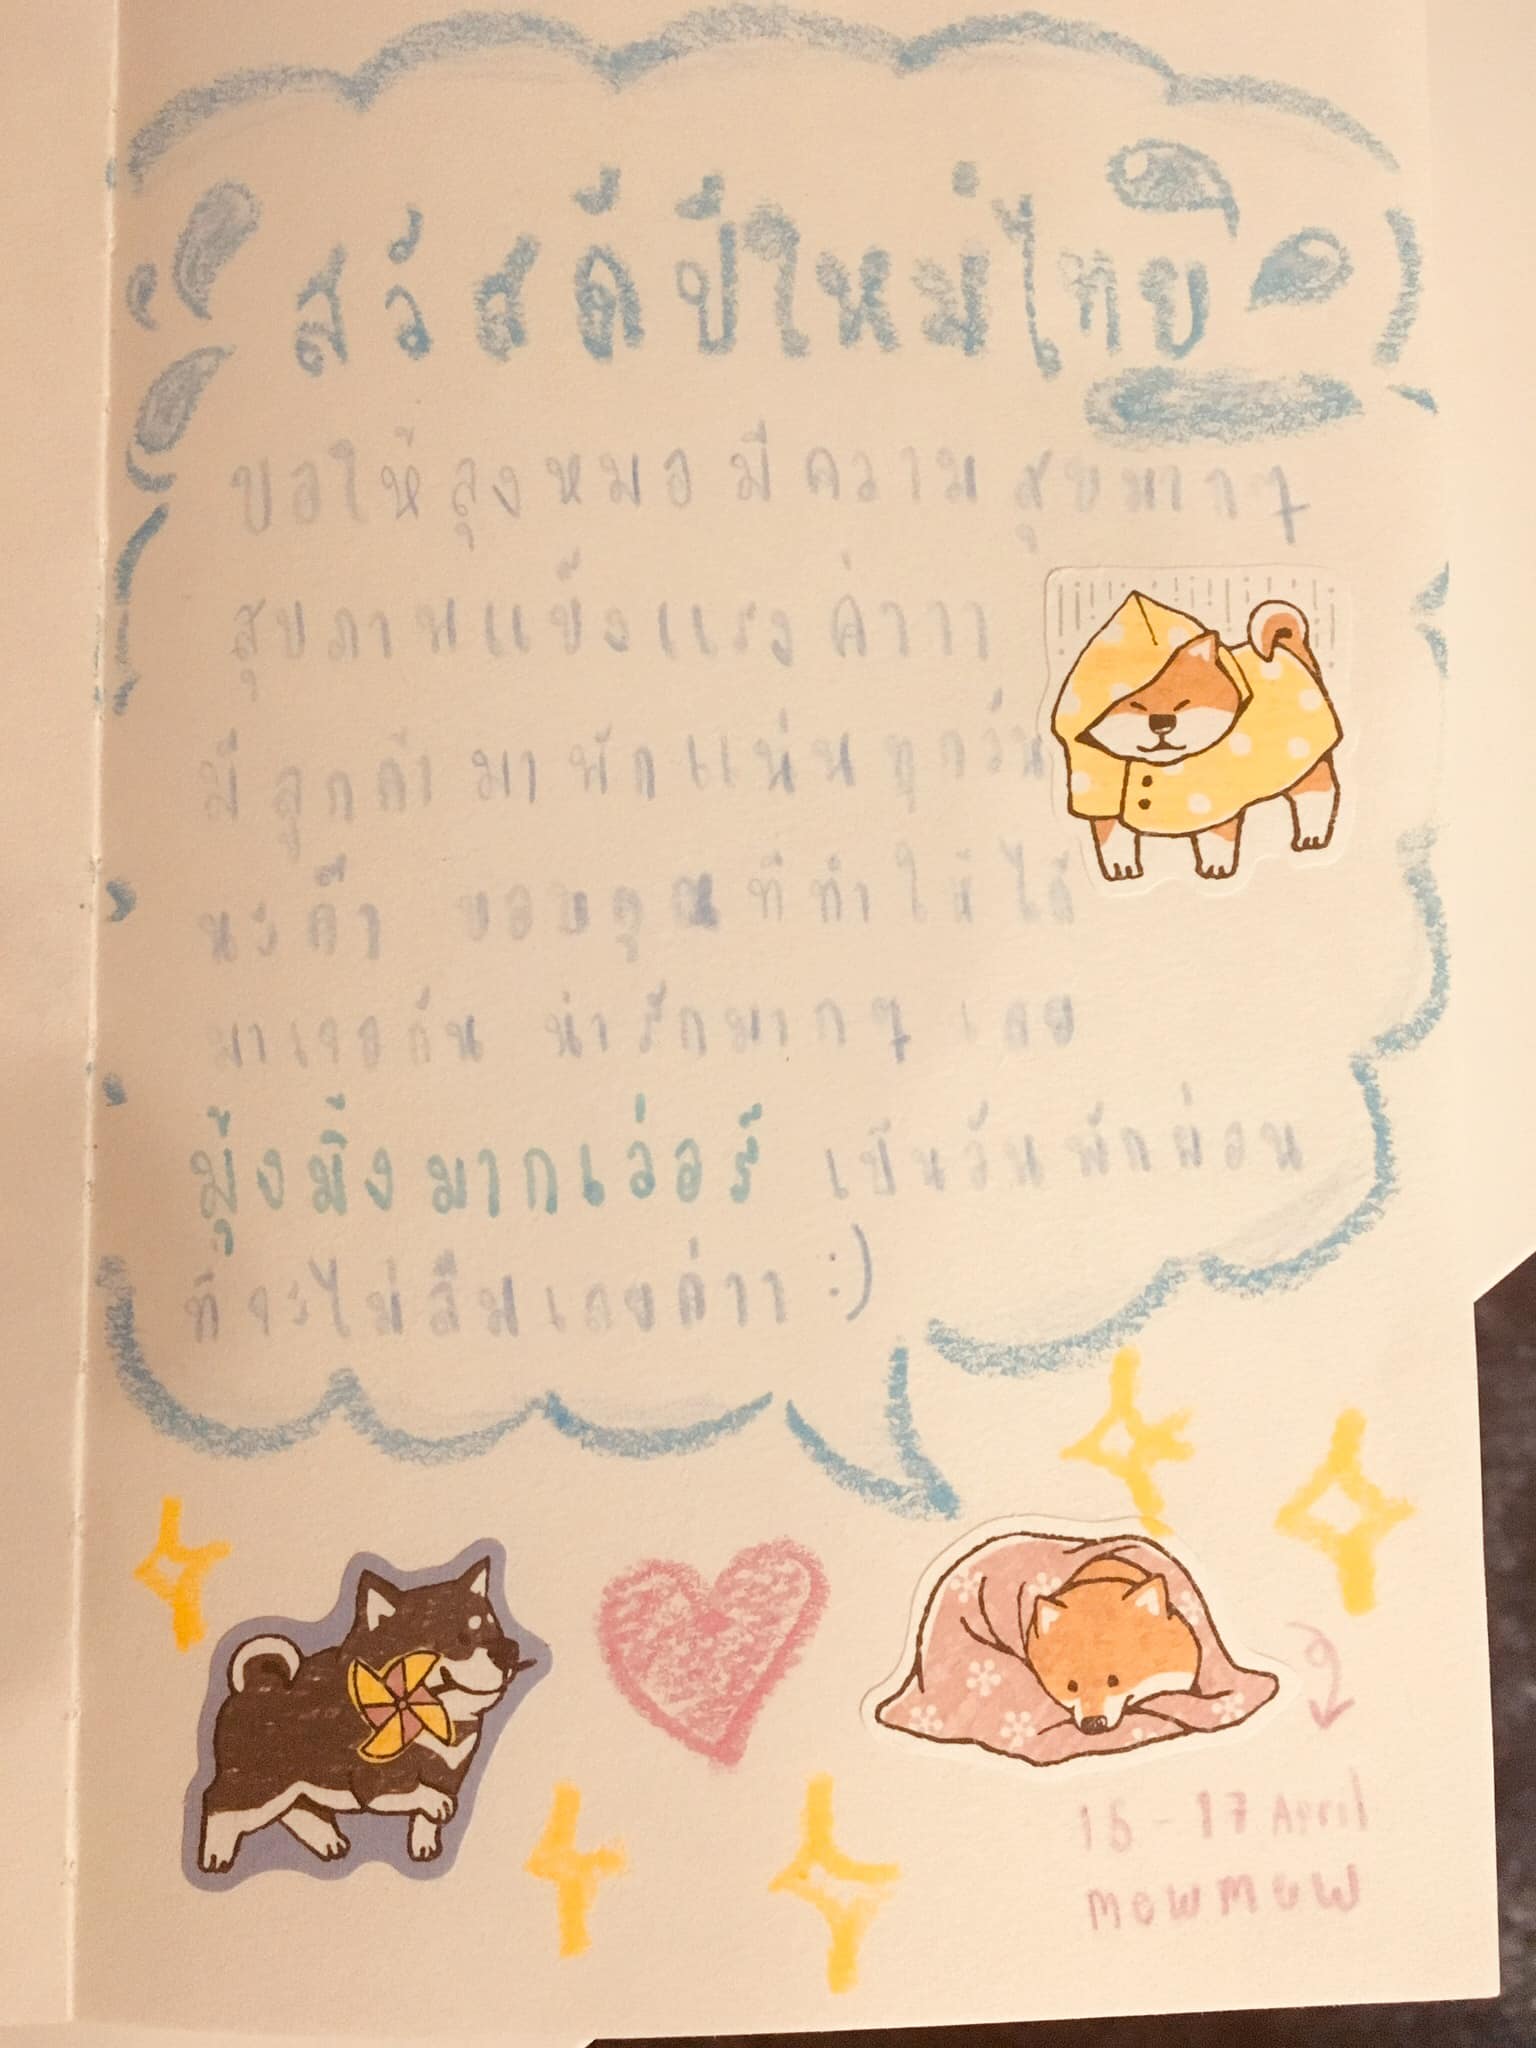 สวัสดีปีใหม่ไทย
ขอให้ลุงหมอมีความสุขมากๆ
สุขภาพแข็งแรงค่าาา
มีลูกค้ามาพักแน่นทุกวัน
นะค้า ขอบคุณที่ทำให้ได้
มาเจอกัน น่ารักมากๆ เลย
มุ้งมิ้งมากเว่อร์ เป็นวันพักผ่อน
ที่จะไม่ลืมเลยค่าา :)
15-17 April
mewmew